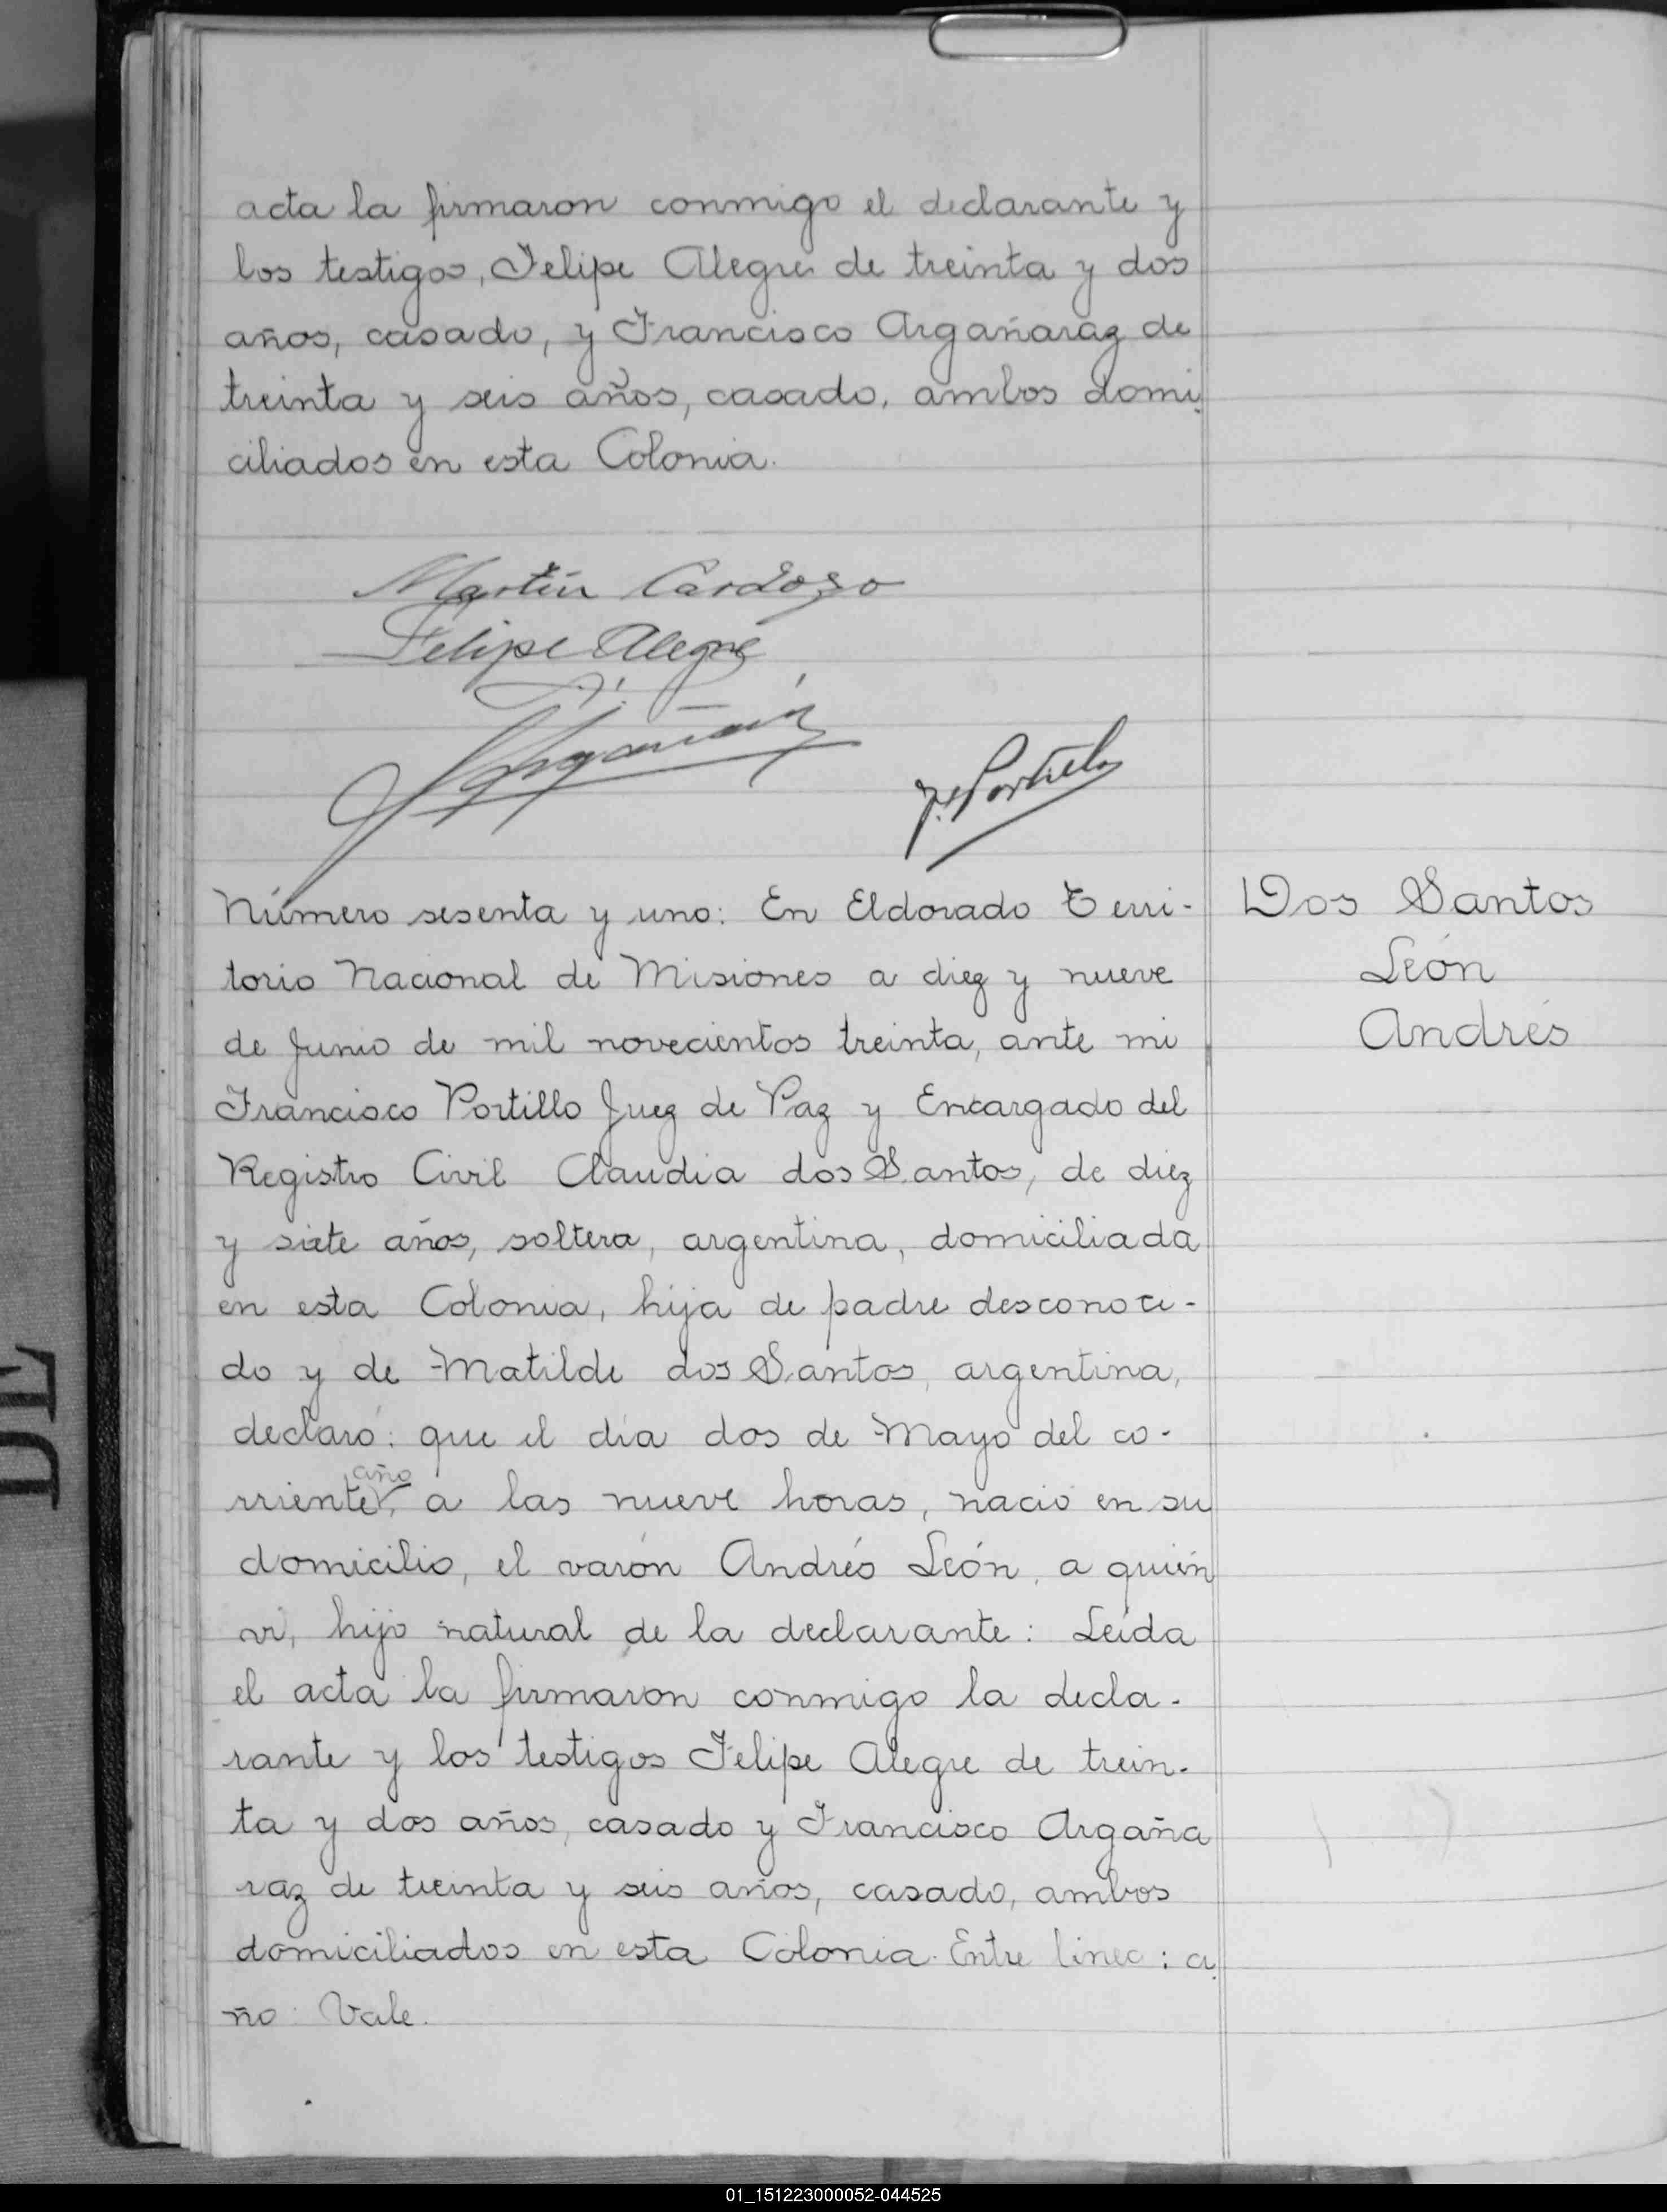 acta la firmaron conmigo el declarante y
los testigos, Felipe Alegre de treinta y dos
años, casado, y Francisco Argañaraz de
treinta y seis años, casado, ambos domi-
ciliados en esta Colonia.
Martín Cardozo
Felipe Alegre
F. Portillo
Dos Santos
León
Andrés
Número sesenta y uno: En Eldorado Terri-
torio Nacional de Misiones a diez y nueve
de Junio de mil novecientos treinta, ante mi
Francisco Portillo Juez de Paz y Encargado del
Registro Civil Claudia dos Santos, de diez
y siete años, soltera, argentina, domiciliada
en esta Colonia, hija de padre desconoci-
do y de Matilde dos Santos, argentina,
declaró: que el día dos de Mayo del co-
año
rriente, a las nueve horas, nació en su
domicilio, el varón Andrés León, a quién
vi, hijo natural de la declarante: Leída
el acta la firmaron conmigo la decla-
rante y los testigos Felipe Alegre de trein-
ta y dos años, casado y Francisco Argaña
raz de treinta y seis años, casado, ambos
domiciliados en esta Colonia. Entre linea: a-
ño: Vale.
DE
01_151223000052-044525